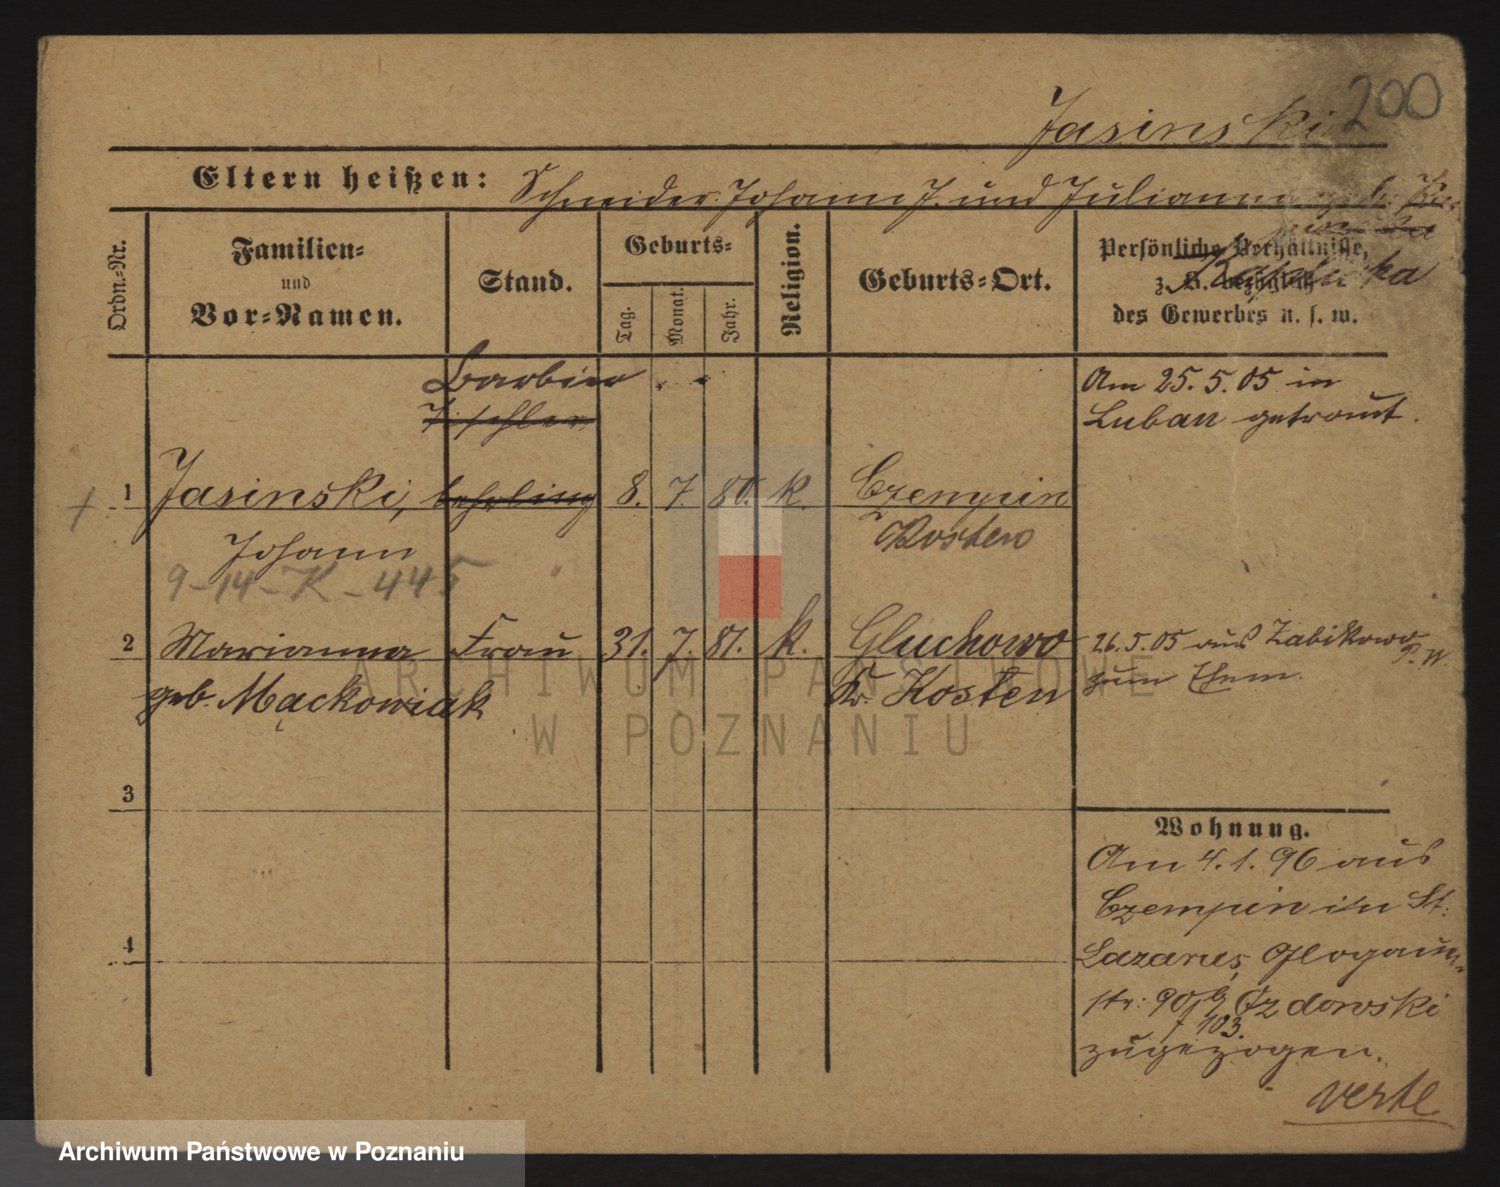 200
Jasinski
Eltern heißen: Schneider Johann J. und Julianna geb.
Ordn.-Nr.
Familien-
und
Vor-Namen.
Stand.
Geburts-
Tag.
Monat.
Jahr.
Religion.
Geburts-Ort.
Persönliche Verhältnisse,
z. B. bezüglich
des Gewerbes u. s. w.
Barbier
Tischler
Am 25. 5. 05 in
Luban getraut.
1 Jasinski, Lehrling 8. 7. 80. k. Czempin
Johann Kosten
9-14-K-445
2 Marianna Frau 31. 7. 81. k. Gluchowo
geb. Mąckowiak Kr. Kosten
26. 5. 05 aus Zabikowo P. W.
zum Ehem.
3
4
Wohnung.
Am 4. 1. 96 aus
Czempin in St.
Lazarus, Glogauer-
str: 90 b/ Ozdowski
103.
zugezogen.
verte
ARCHIWUM PAŃSTWOWE
W POZNANIU
Archiwum Państwowe w Poznaniu